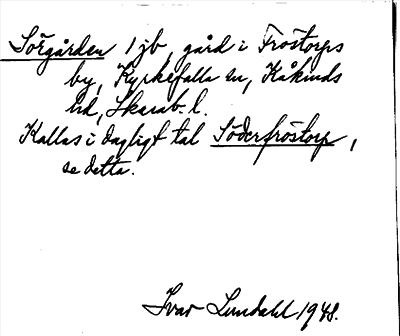 Sörgården 1 jb, gård i Frostorps
by, Kyrkefalla sn, Kåkinds
hd, Skarab. l.
Kallas i dagligt tal Söderfrostorp,
se detta.
Ivar Lundahl 1948.